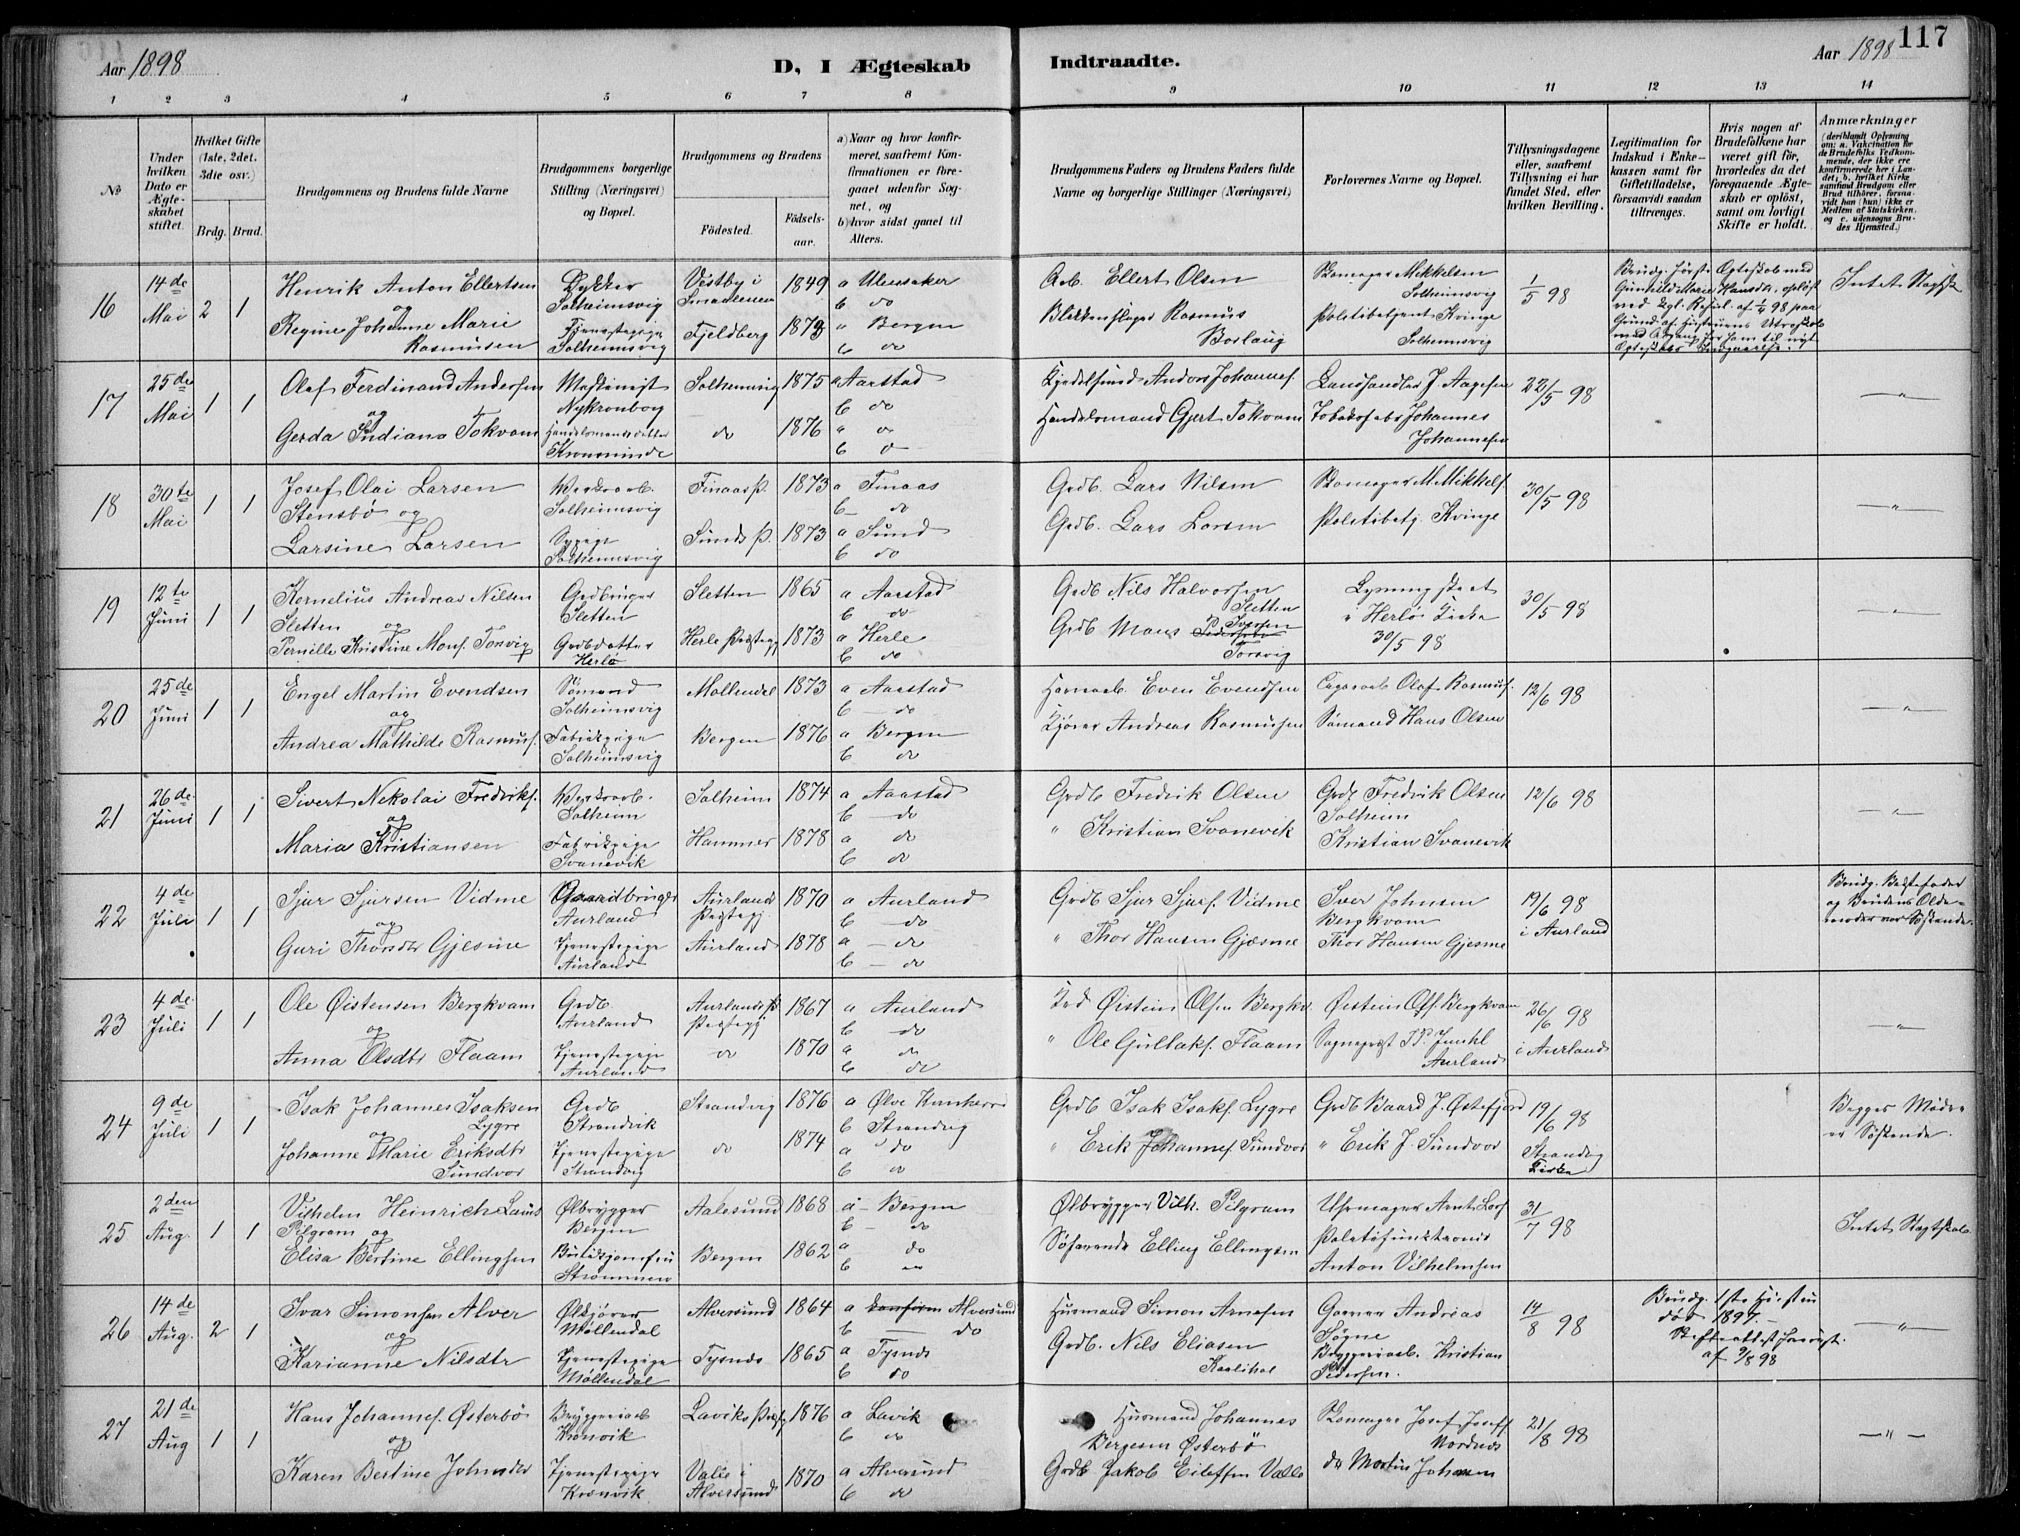 117
Aar 1898
D, I Ægteskab Indtraadte.
Aar 1898
1 2 3 4 5 6 7 8 9 10 11 12 13 14
No
Under hvilken Dato er Ægteskabet stiftet.
Hvilket Gifte (1ste, 2det. 3die osv.)
Brdg. Brud.
Brudgommens og Brudens fulde Navne
Brudgommens borgerlige Stilling (Næringsvei) og Bopæl.
Brudgommens og Brudens
Födested.
Födselsaar.
a) Naar og hvor konfirmeret, saafremt Konfirmationen er foregaaet udenfor Sognet, og
b) hvor sidst gaaet til Alters.
Brudgommens Faders og Brudens Faders fulde Navne og borgerlige Stillinger (Næringsvei).
Forlovernes Navne og Bopæl.
Tillysningsdagene eller, saafremt Tillysning ei har fundet Sted, efter hvilken Bevilling.
Legitimation for Indskud i Enkekassen samt for Giftetilladelse, forsaavidt saadan tiltrænges.
Hvis nogen af Brudefolkene har været gift för, hvorledes da det foregaaende Ægteskab er oplöst, samt om lovligt Skifte er holdt.
Anmærkninger (deriblandt Oplysning om: a. Vakcination for de Brudefolks Vedkommende, der ikke ere konfirmerede her i Landet; b. hvilket Kirkesamfund Brudgom eller Brud tilhører, forsaavidt han (hun) ikke er Medlem af Statskirken, og c. udensogns Brudes Hjemsted.)
16
14de Mai
2 1
Henrik Anton Ellertsen
og
Regine Johanne Marie Rasmussen
Dykker
Solheimsvig
Tjenestepige
Solheimsvig
Vestby i Smaalenene
Fjeldberg
1849
1873
a Ullensaker
b do
a Bergen
b do
Arb. Ellert Olsen
Blikkenslager Rasmus Borlaug
Skomager Mikkelsen
Solheimsvig
Politibetjent Kvinge
Solheimsvig
1/5 98
Brudg. förste Ægteskab med
Intet Slagtsk
17
25de Mai
1 1
Olaf Ferdinand Andersen
og
Gerda Indiana Tokvam
Maskinist
Nykronborg
Handelsmands datter
Kronminde
Solheimsvig
do
1875
1876
a Aarstad
b do
a do
b do
Kjedelsmed Anders Johannes.
Handelsmand Gjert Tokvam
Landhandler J. Aagesen
Tobaksarb Johannes Johannesen
22/5 98
18
30te Mai
1 1
Josef Olai Larsen
Stensbö og
Larsine Larsen
Verksarb.
Solheimsvig
Sypige
Solheimsvig
Finaas P.
Sunds P.
1873
1873
a Finaas
b do
a Sund
b do
Grdb. Lars Nilsen
Grdb. Lars Larsen
Skomager M Mikkels.
Politibetj. Kvinge
30/5 98
19
12te Juni
1 1
Kornelius Andreas Nilsen
Sletten og
Pernille Kristine Mons. Torsvig
Grdbruger
Sletten
Grdbdatter
Herlö
Sletten
Herlö Præstegj
1865
1873
a Aarstad
b do
a Herlö
b do
Grdb Nils Halvorsen
Sletten
Grdb Mons P Iversen
Torsvig
Lysningsattest
Herlö Kirke
30/5 98
30/5 98
20
25de Juni
1 1
Engel Martin Evendsen
og
Andrea Mathilde Rasmus.
Sømand
Solheimsvig
Fabrikpige
Solheimsvig
Møllendal
Bergen
1873
1876
a Aarstad
b do
a Bergen
b do
Havnearb. Even Evendsen
Kjører Andreas Rasmussen
Olaf Rasmus.
Sømand Hans Olsen
12/6 98
21
26de Juni
1 1
Sivert Nikolai Fredriks.
og
Maria Kristiansen
Verksarb.
Solheim
Fabrikpige
Svanevik
Solheim
Hammer
1874
1878
a Aarstad
b do
a do
b do
Grdb Fredrik Olsen
" Kristian Svanevik
Grdb Fredrik Olsen
Solheim
Kristian Svanevik
12/6 98
22
4de Juli
1 1
Sjur Sjursen Vidme
og
Guri Thorsdtr Gjesme
Gaardbruger
Aurland
Tjenestepige
Aurland
Aurland Prestegj.
Aurland
1870
1878
a Aurland
b do
a do
b do
Grdb Sjur Sjurs. Vidme
" Thor Hansen Gjesme
Iver Johnsen
Bergkvam
Thor Hansen Gjesme
19/6 98
i Aurland
Brudg. Bestefader
og Brudens Oldemoder var Söskende.
23
4de Juli
1 1
Ole Øistensen Bergkvam
og
Anna Olsdtr Flaam
Grdb
Aurland
Tjenestepige
Aurland
Aurlands Prestegj
do
1867
1870
a Aurland
b do
a do
b do
Øistein Olsen Bergkv.
" Ole Gullaks. Flaam
Øistein Ols. Bergkvam
Sognepræst Juuhl
Aurland
26/6 98
i Aurland
24
9de Juli
1 1
Isak Johannes Isaksen
Lygre
og
Johanne Marie Eriksdtr
Sundvor
Grdb
Strandvik
Tjenestepige
Strandvig
Strandvig
do
1876
1874
a Ølve
b Strandvig
a do
b do
Grdb Isak Isaks. Lygre
" Erik Johannes. Sundvor
Grdb Baard J. Østefjord
" Erik J. Sundvor
19/6 98
Strandvig
Kirke
Begges Mødre
er Søskende.
25
2den Aug.
1 1
Vilhelm Heinrich Louis
Pilgram og
Elisa Bertine Ellingsen
Ølbrygger
Bergen
Butikjomfru
Strømmen
Aalesund
Bergen
1868
1862
a Bergen
b do
a do
b do
Ølbrygger Vilh. Pilgram
Søfarende Elling Ellingsen
Uhrmager Arnt
Anton Vilhelmsen
31/7 98
Intet Slagtskab.
26
14de Aug.
2 1
Ivar Simonsen Alver
og
Karianne Nilsdtr
Ølkjører
Møllendal
Tjenestepige
Møllendal
Alversund
Tysnes
1864
1865
a Alversund
b do
a Tysnes
b do
Husmand Simon Arnesen
Grdb. Nils Eliasen
Garver Andreas
Søgne
Bryggeriarb. Kristian
Pedersen.
14/8 98
Brudg. 1ste Hustru
död 1897.
Skifteattest
af 9/8 98
27
21de Aug
1 1
Hans Johannes. Østerbø
og
Karen Bertine Johnsdtr
Bryggeriarb
Kronvik
Tjenestepige
Kronvik
Laviks Præstgj
Valle i Alversund
1876
1870
a Lavik
b do
a Alversund
b do
Husmand Johannes
Bergesen Østerbø
Grdb Jakob Eilefsen Valle
Skomager Josef
Nordnes
do Martin Johansen
21/8 98